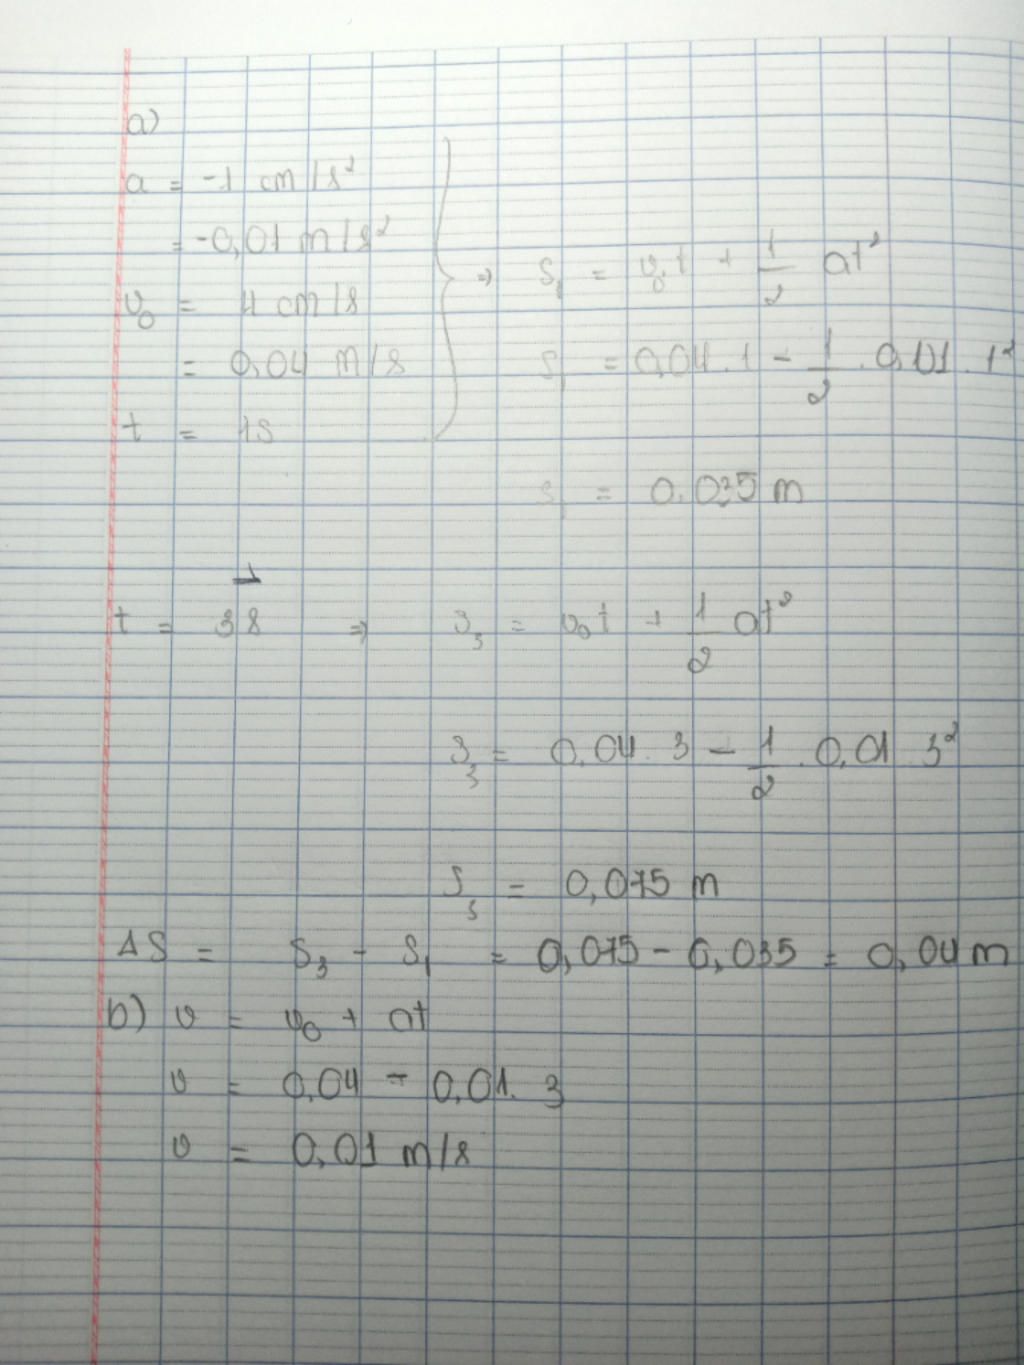 a)
a = -1 cm/s²
= -0,01 m/s²
v₀ = 4 cm/s
= 0,04 m/s
t = 1s
⇒ S₁ = v₀t + 1/2 at²
S₁ = 0,04.1 - 1/2 . 0,01 . 1²
S₁ = 0,035 m
t = 3s ⇒ S₃ = v₀t + 1/2 at²
S₃ = 0,04 . 3 - 1/2 . 0,01 3²
S₃ = 0,075 m
ΔS = S₃ - S₁ = 0,075 - 0,035 = 0,04 m
b) v = v₀ + at
v = 0,04 - 0,01. 3
v = 0,01 m/s